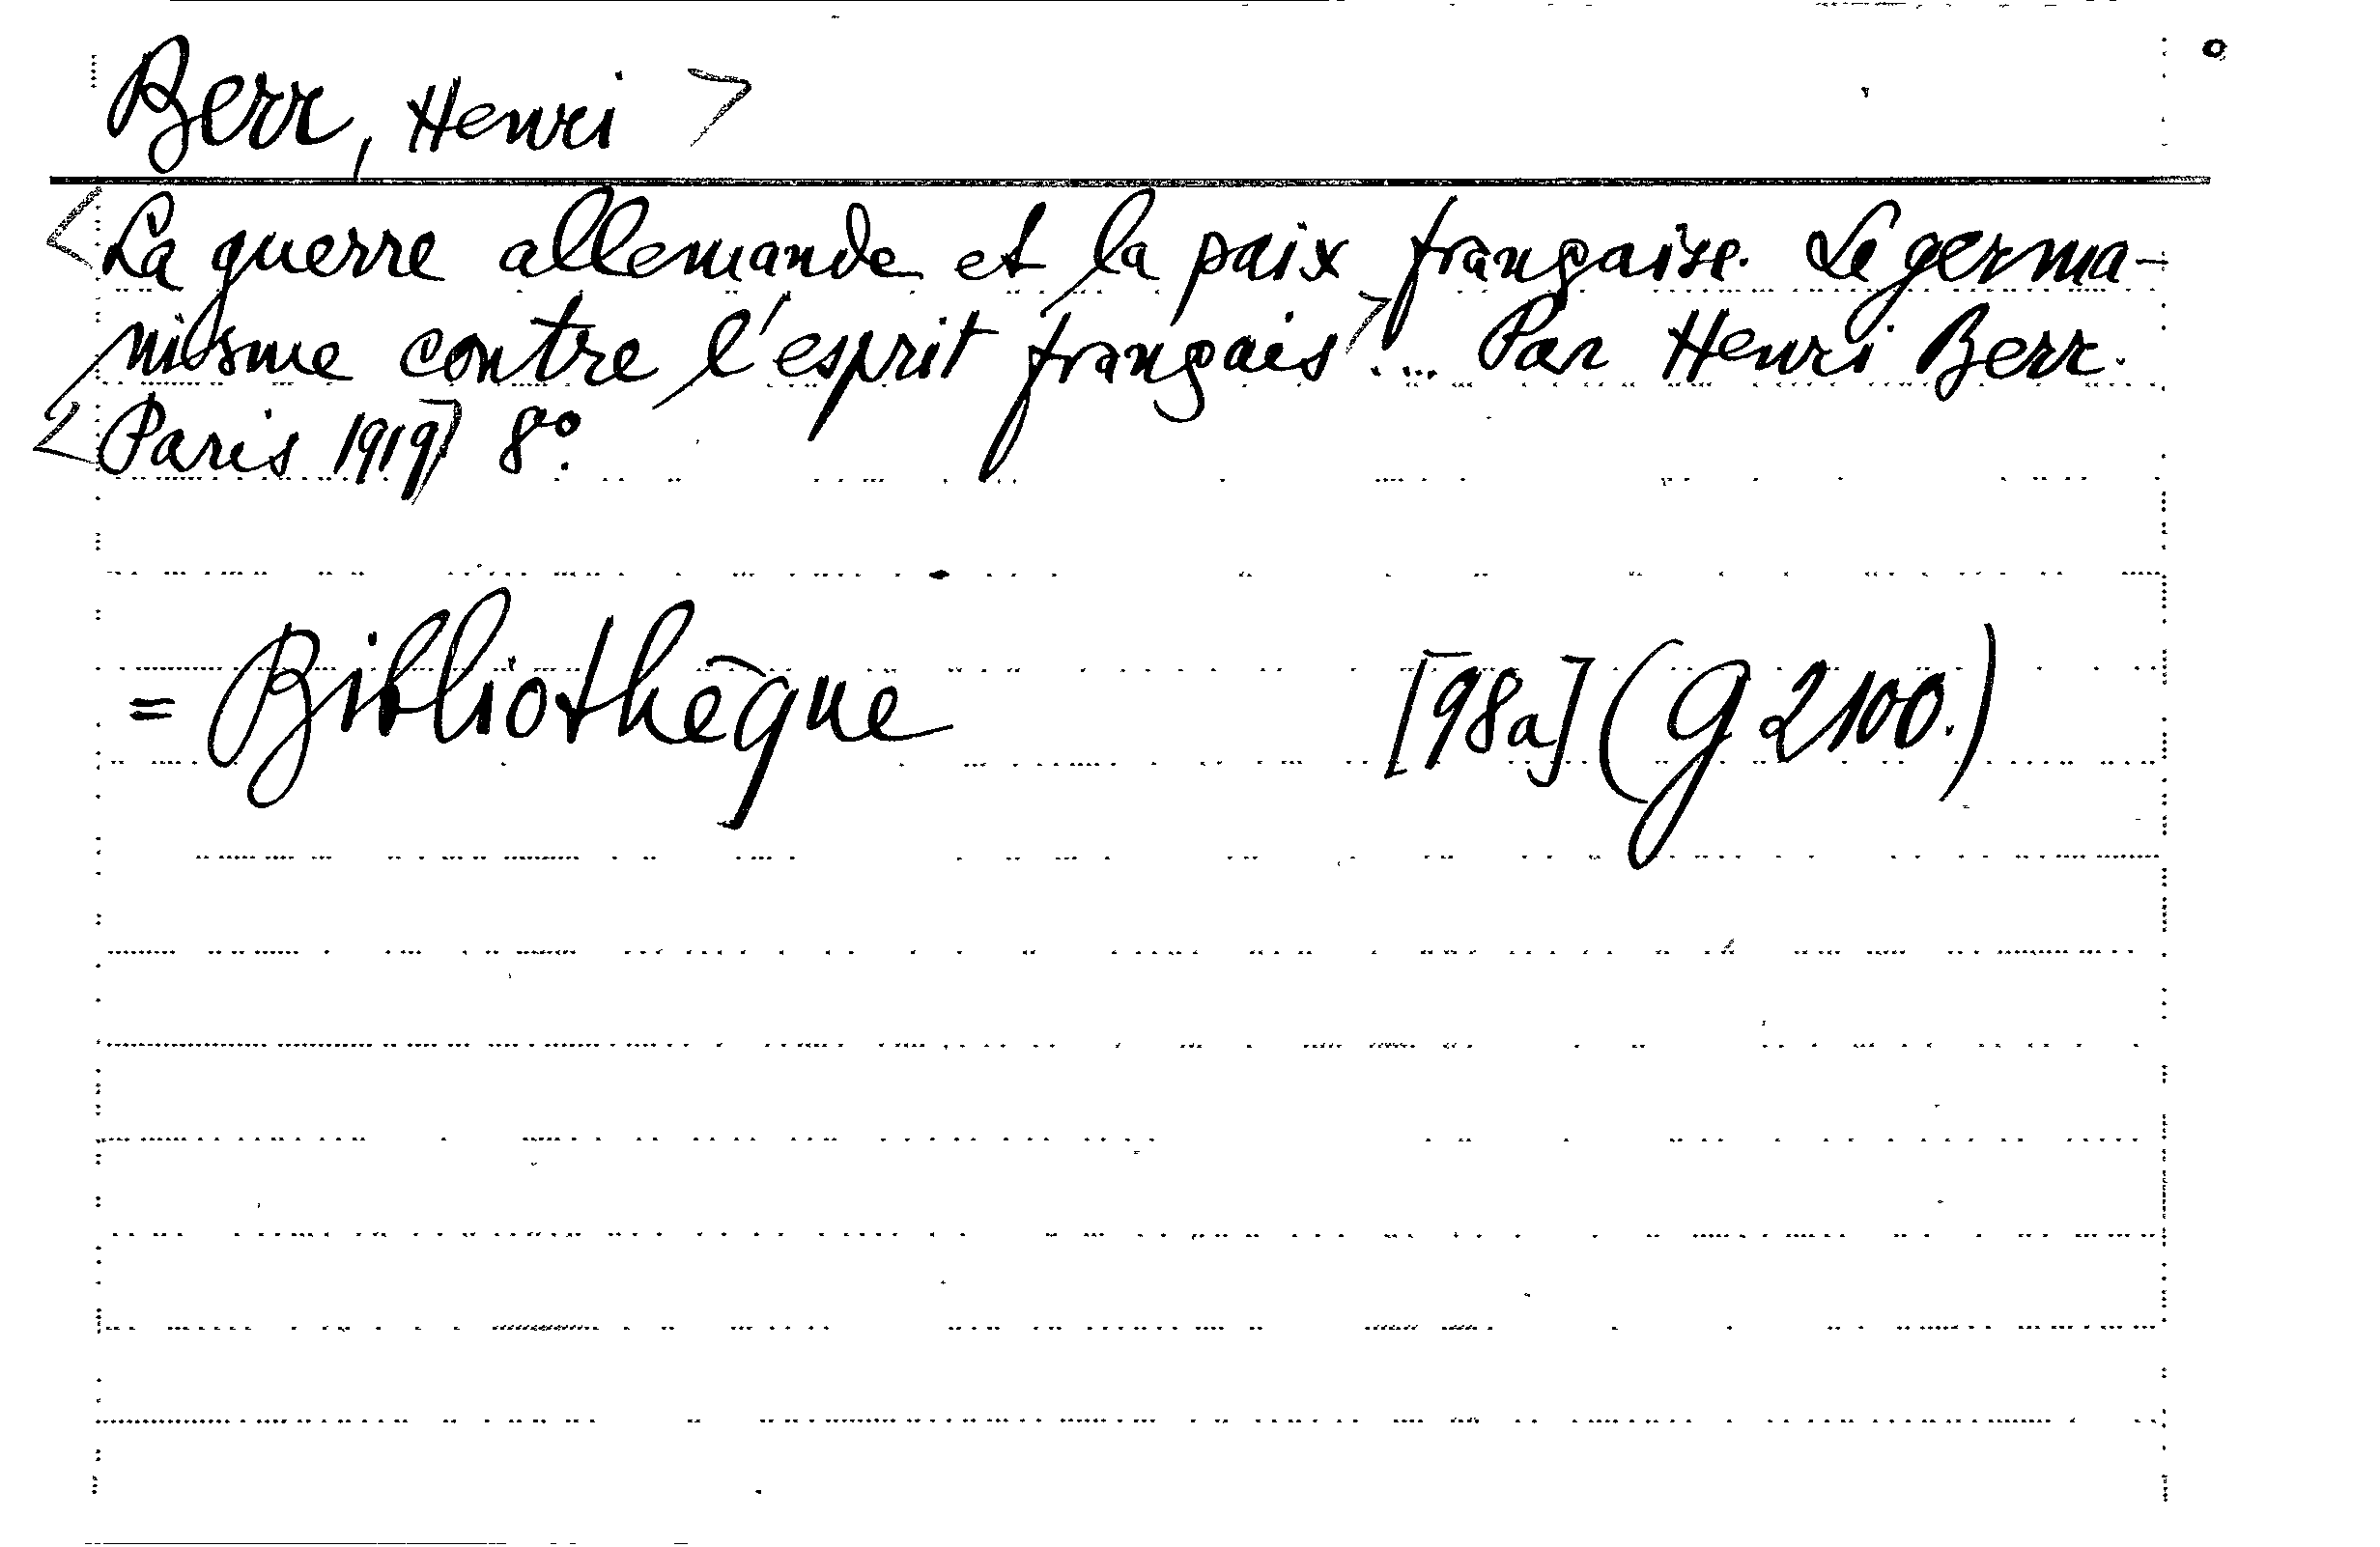 Berr, Henri >
<La guerre allemande et la paix française. Le germa-
nisme contre l'esprit français>... Par Henri Berr.
<Paris 1919> 8°.
= Bibliothèque [98a] (G 2100.)